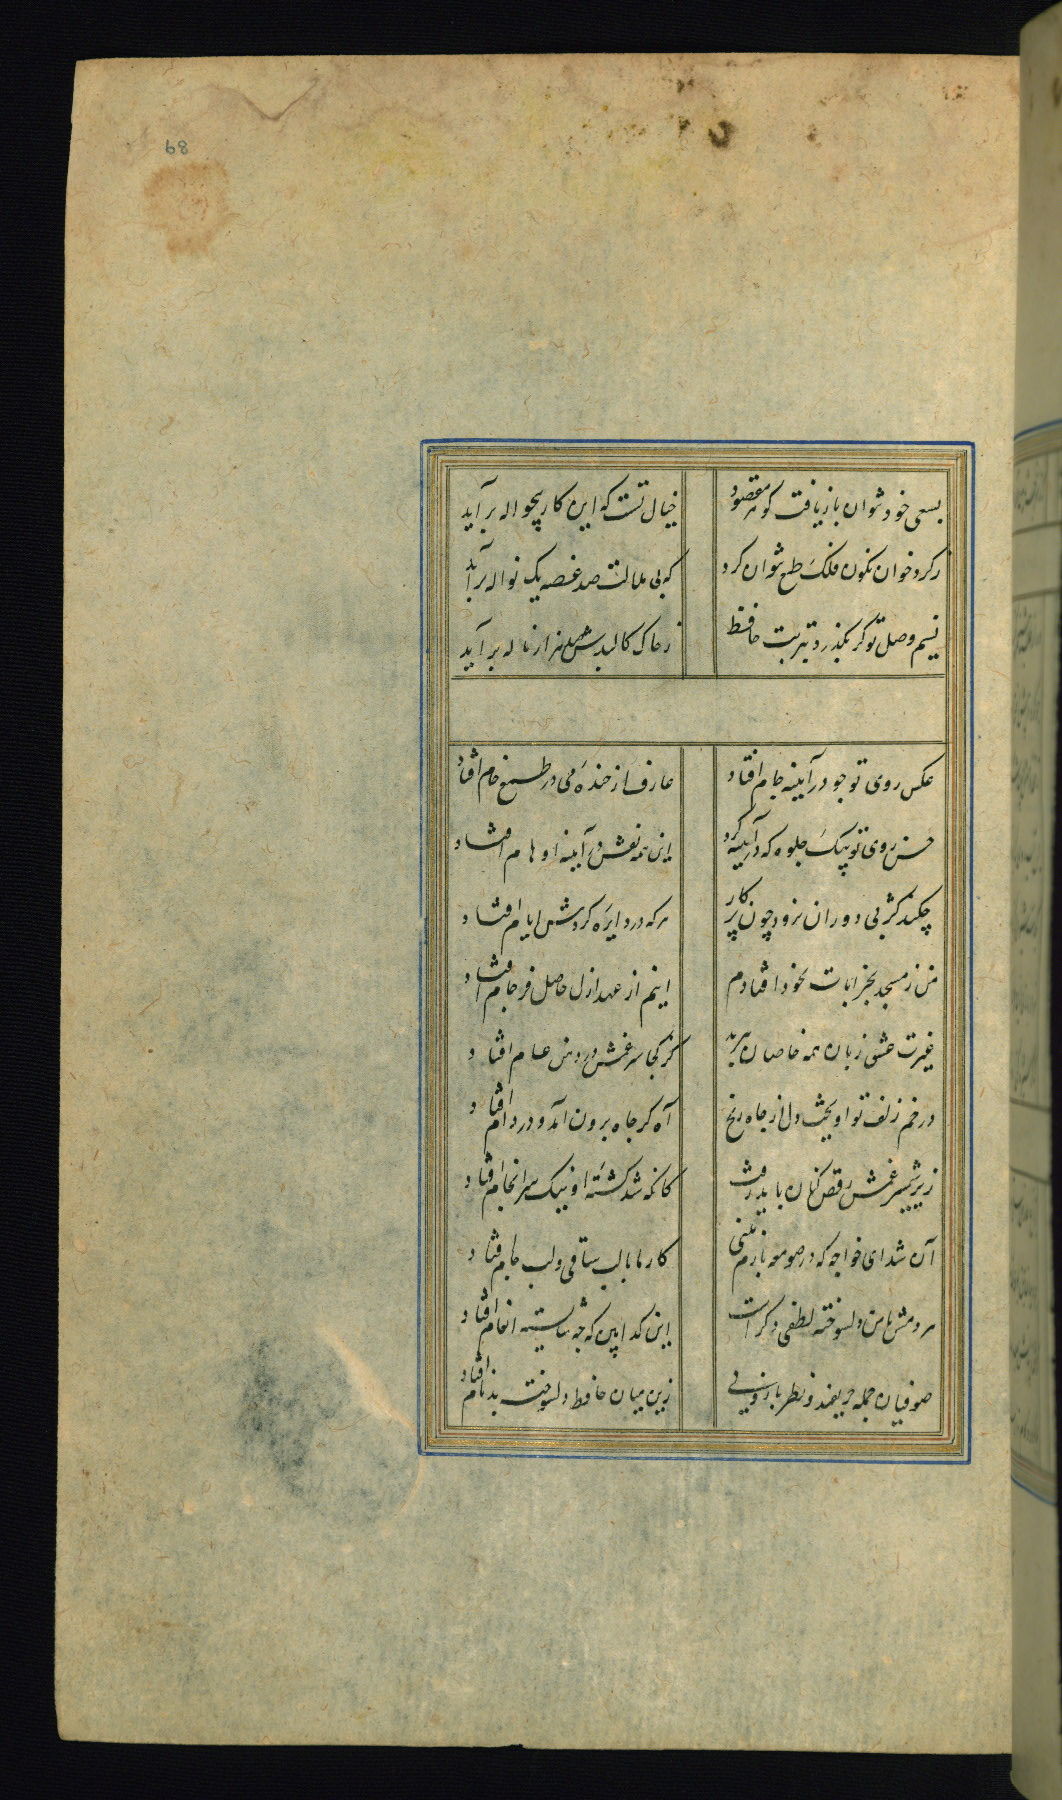 68
بسعی خود نتوان باز یافت گوهر مقصود خیال تست که این کار بیحواله برآید
زکرد خوان نکون فلک طمع نتوان کرد که بی ملالت صد غصه یک نواله برآید
نسیم وصل تو گر بگذرد بتربت حافظ زخاک کالبدش هزار ناله برآید
عکس روی تو چو در آیینه جام افتاد عارف از خنده می در طمع خام افتاد
حسن روی تو بیک جلوه که در آیینه کرد این همه نقش در آیینه اوهام افتاد
چکند کز پی دوران نرود چون پرکار هرکه در دایره گردش ایام افتاد
من ز مسجد بخرابات نخود افتادم اینم از عهد ازل حاصل فرجام افتاد
غیرت عشق زبان همه خاصان ببرید کز کجا سر غمش در دهن عام افتاد
در خم زلف تو آویخت دل از چاه زنخ آه کز چاه برون آمد و در دام افتاد
زیر شمشیر غمش رقص کنان باید رفت کانکه شد کشته او نیک سرانجام افتاد
آن شد ای خواجه که در صومعه بازم بینی کار ما با لب ساقی و لب جام افتاد
هر دمش با من دلسوخته لطفی دگرست این گدا بین که چه شایسته انعام افتاد
صوفیان جمله حریفند و نظرباز ولی زین میان حافظ دلسوخته بدنام افتاد